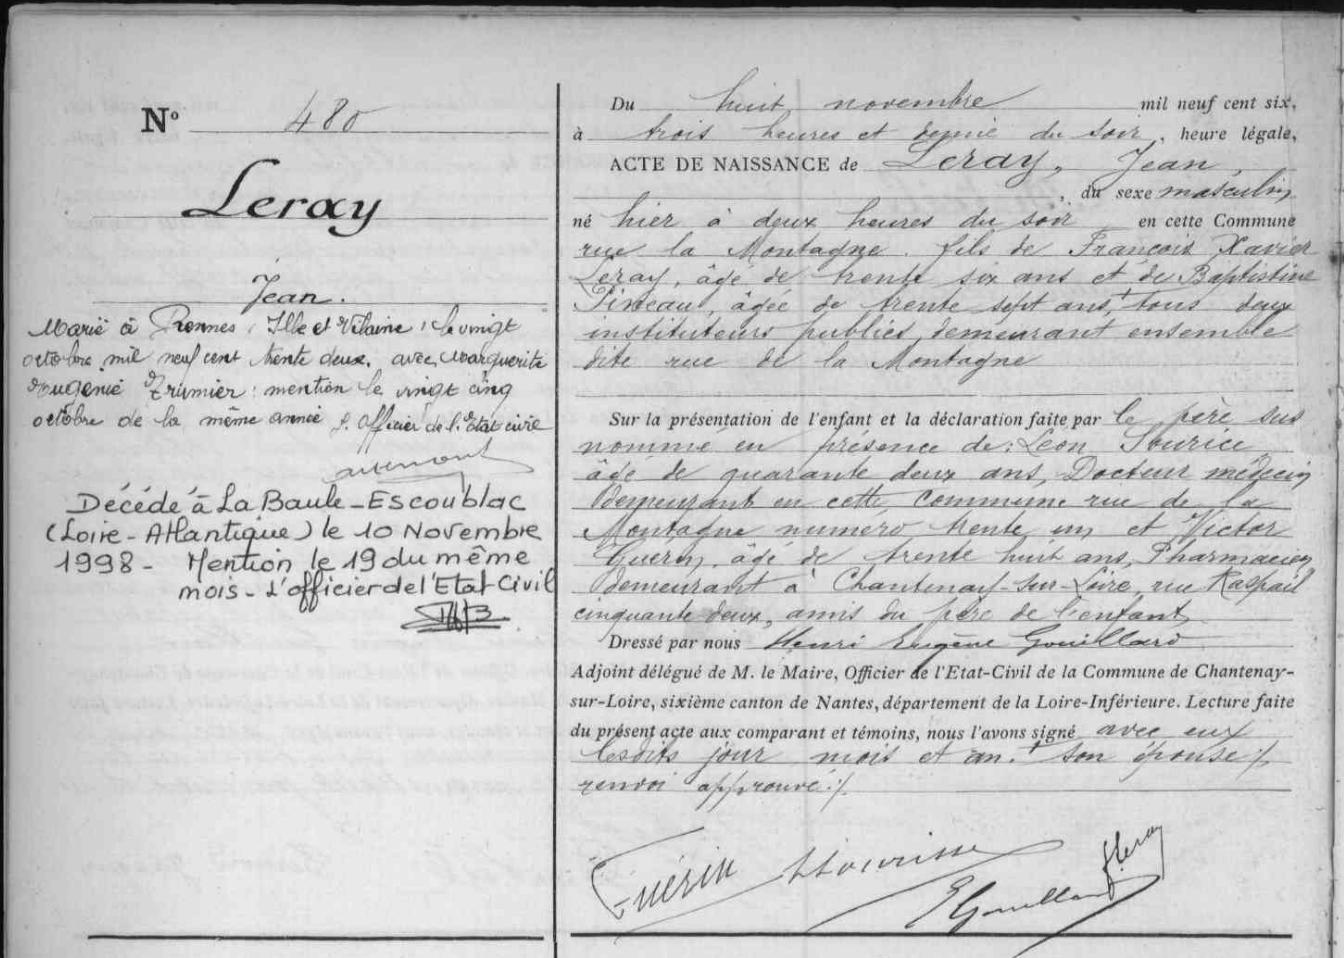 N° 480
Leray
Jean.
Marié à Rennes, Ille et Vilaine, le vingt
octobre mil neuf cent trente deux, avec Marguerite
Eugénie mention le vingt cinq
octobre de la même année l'officier de l'Etat civil
Décédé à La Baule-Escoublac
(Loire-Atlantique) le 10 Novembre
1998 - Mention le 19 du même
mois - L'officier de l'Etat Civil
Du huit novembre mil neuf cent six,
à trois heures et demie du soir, heure légale,
ACTE DE NAISSANCE de Leray, Jean,
du sexe masculin
né hier à deux heures du soir en cette Commune
rue la Montagne. fils de François Xavier
Leray, âgé de trente six ans et de Baptistine
Pineau, âgée de trente sept ans, + tous deux
instituteurs publics demeurant ensemble
dite rue de la Montagne
Sur la présentation de l'enfant et la déclaration faite par le père sus
nommé en présence de: Léon Sourice
âgé de quarante deux ans, Docteur médecin
demeurant en cette commune rue de la
Montagne numéro trente un et Victor
Guérin, âgé de trente huit ans, Pharmacien
demeurant à Chantenay-sur-Loire, rue Raspail
cinquante deux, amis du père de l'enfant
Dressé par nous Henri Eugène Gouillard
Adjoint délégué de M. le Maire, Officier de l'Etat-Civil de la Commune de Chantenay-
sur-Loire, sixième canton de Nantes, département de la Loire-Inférieure. Lecture faite
du présent acte aux comparant et témoins, nous l'avons signé avec eux
lesdits jour mois et an. + son épouse /.
renvoi approuvé ./.
Guérin LSourice FLeray
EGouillard